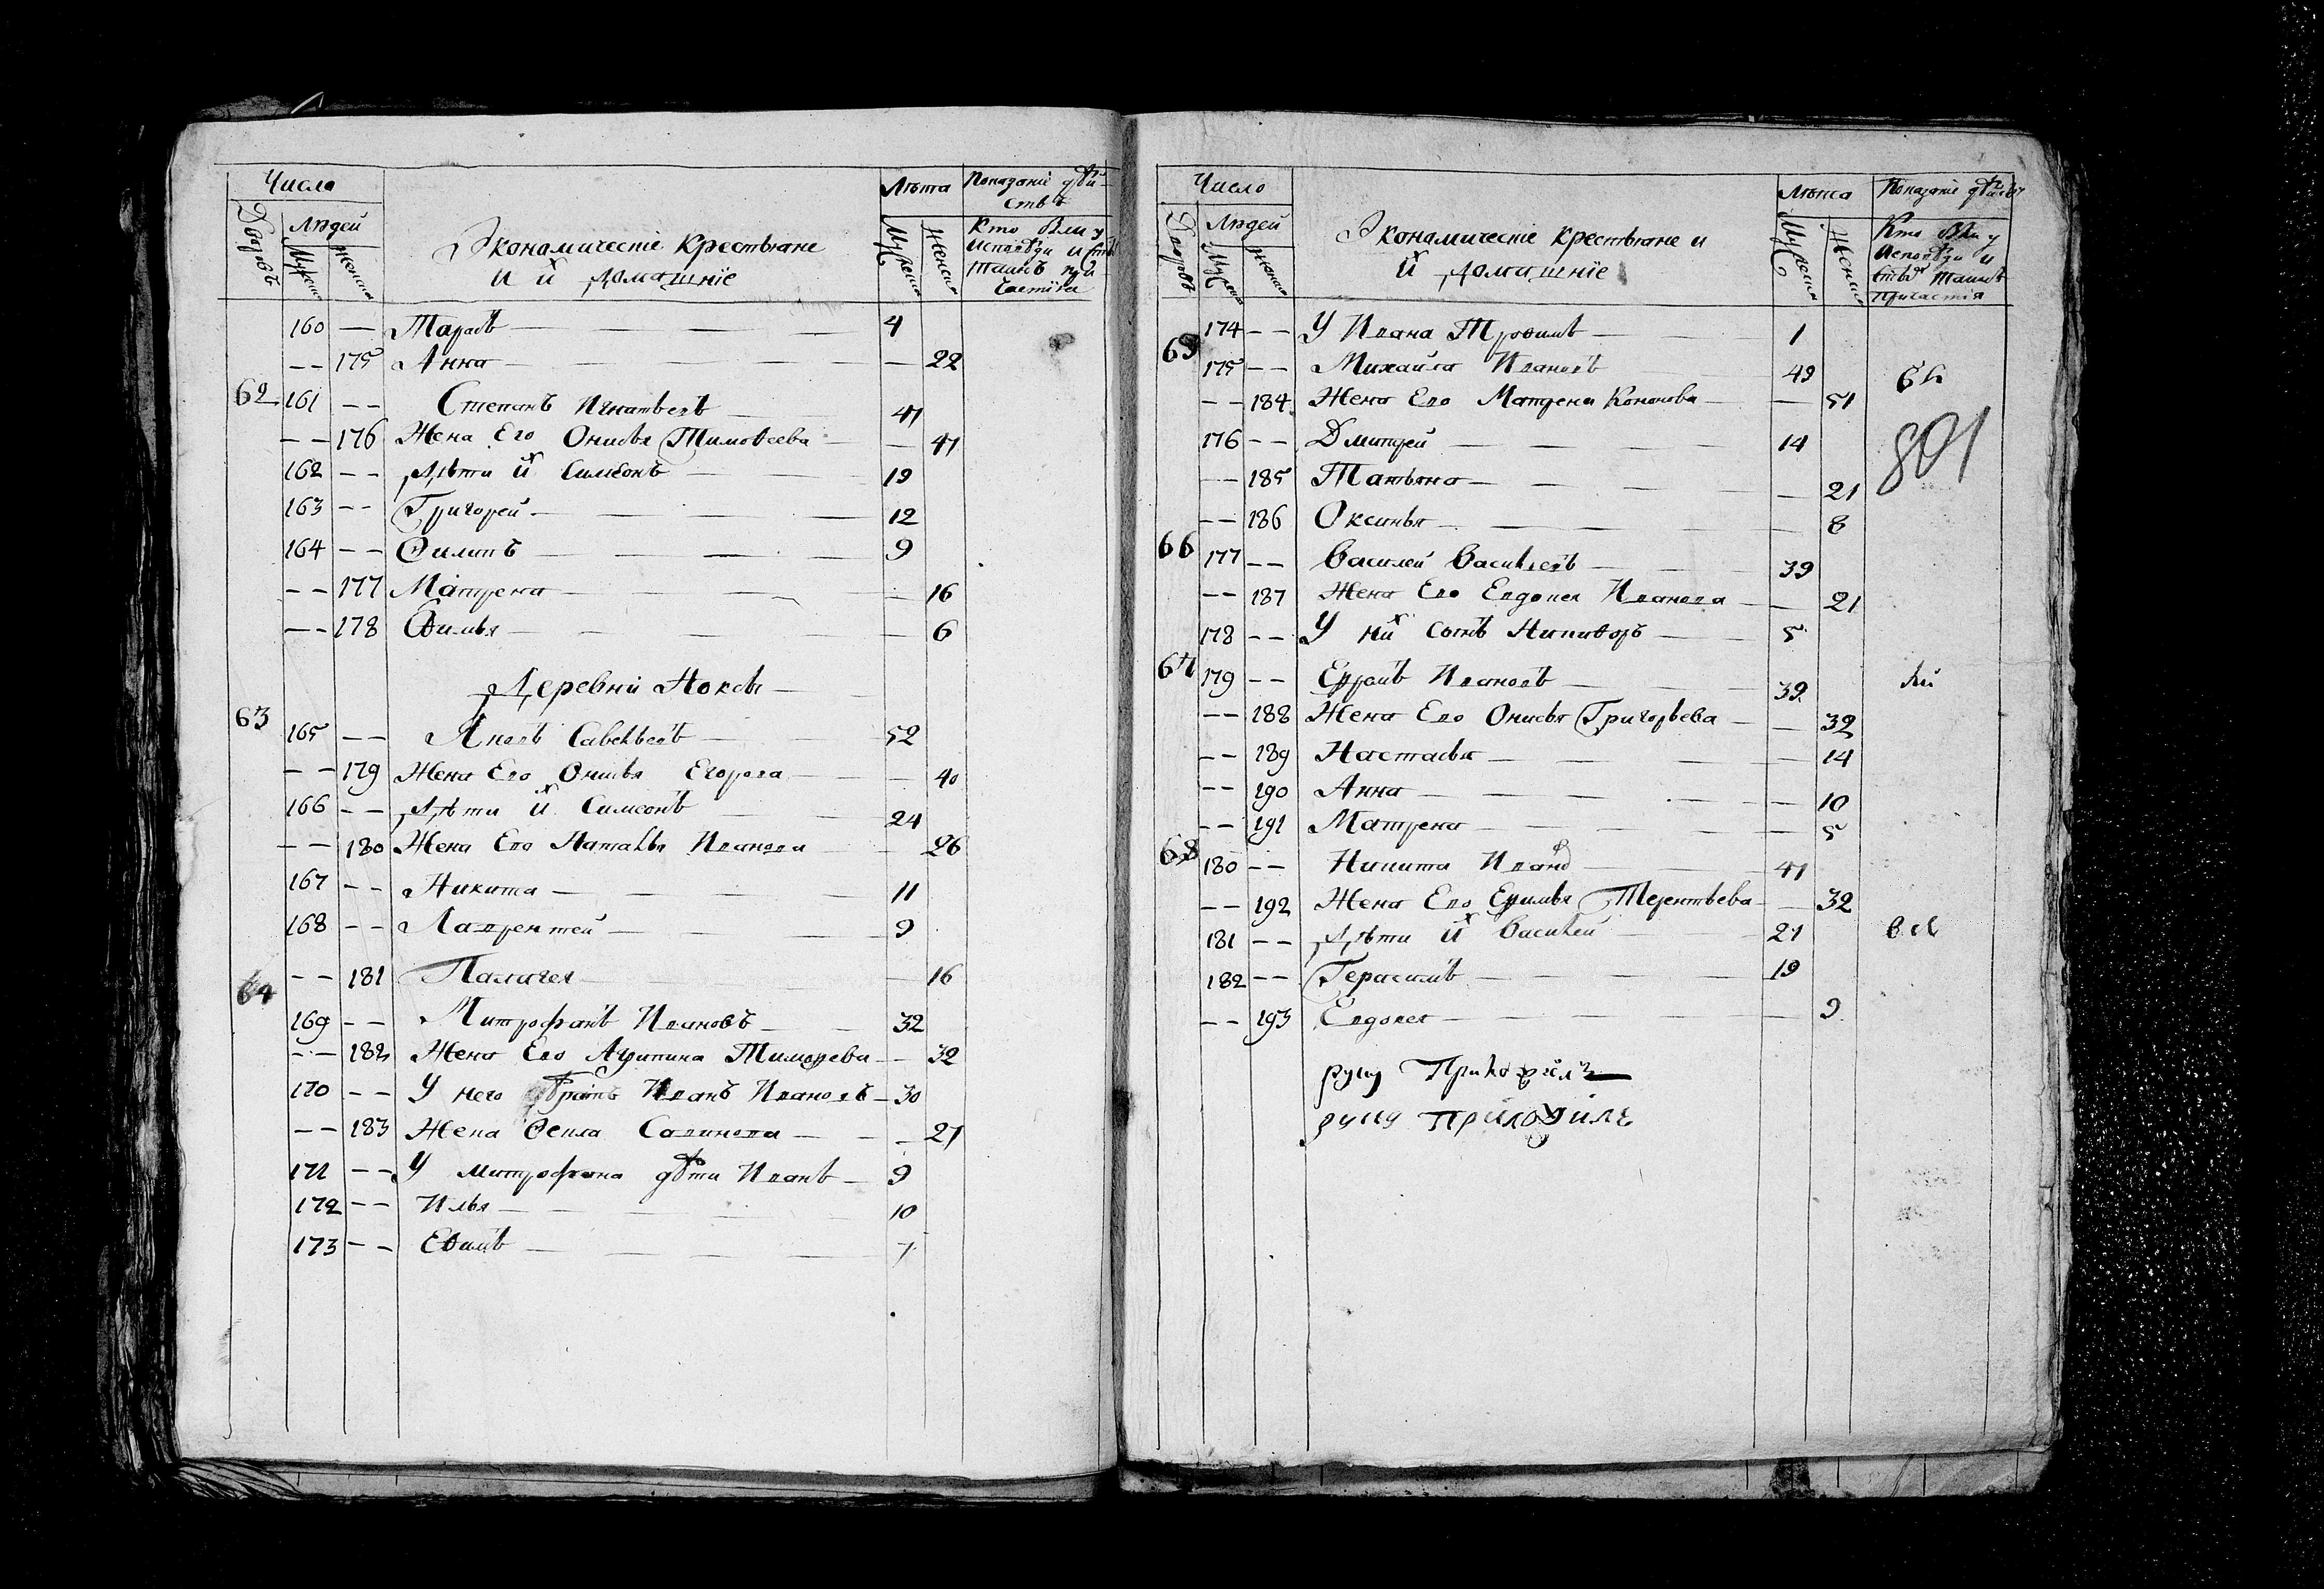 Число
Дворовъ
Людей
Мужеска
Женска
Экономическіе Крестьяне
и их домашніе
Лѣта
Мужеска
Женска
Показаніе дѣи-
ствъ
Кто
Исповѣди и
160 — Тарасъ — 4
— 175 Анна — 22
62 161 — Степанъ Игнатьевъ — 47
— 176 Жена Его Онисья Тимоѳеева — 47
162 — Дѣти их Симеонъ — 19
163 — Григорей — 12
164 — Ѳилипъ — 9
— 177 Матрена — 16
— 178 — 6
Деревни
63 165 — Савельевъ — 52
— 179 Жена Его Онисья Егорова — 40
166 — Дѣти их Симеонъ — 24
— 180 Жена Его Наталья Иванова — 26
167 — Никита — 11
168 — Лаврентей — 9
— 181 Палагея — 16
64 169 — Митрофанъ Ивановъ — 32
— 182 Жена Его Агрипина Тимофеева — 32
170 — У него братъ Иванъ Ивановъ — 30
— 183 Жена Ѳекла Савинова — 27
171 — У митрофана дѣти Иванъ — 9
172 — Илья — 10
173 — Еѳимъ — 7
Число
Дворовъ
Людей
Мужеска
Женска
Экономическіе Крестьяне и
их домашніе
Лѣта
Мужеска
Женска
Показаніе
Кто
Исповѣди и
Причастія
174 — У Ивана Троѳимъ — 1
65 175 — Михайла Ивановъ — 49
— 184 Жена Его Матрена Кононова — 51
801
176 — Дмитрей — 14
— 185 Татьяна — 21
— 186 Оксинья — 8
66 177 — Василей Васильевъ — 39
— 187 Жена Его Евдокея Иванова — 21
178 — У них сынъ Никиѳоръ — 5
67 179 — Ивановъ — 39
— 188 Жена Его Онисья Григорьева — 32
— 189 Настасья — 14
— 190 Анна — 10
— 191 Матрена — 5
68 180 — Никита Иванов — 47
— 192 Жена Его Терентьева — 32
181 — Дѣти их Василей — 21
182 — Герасимъ — 19
— 193 Евдокея — 9
руку Приложилъ
руку приложилъ